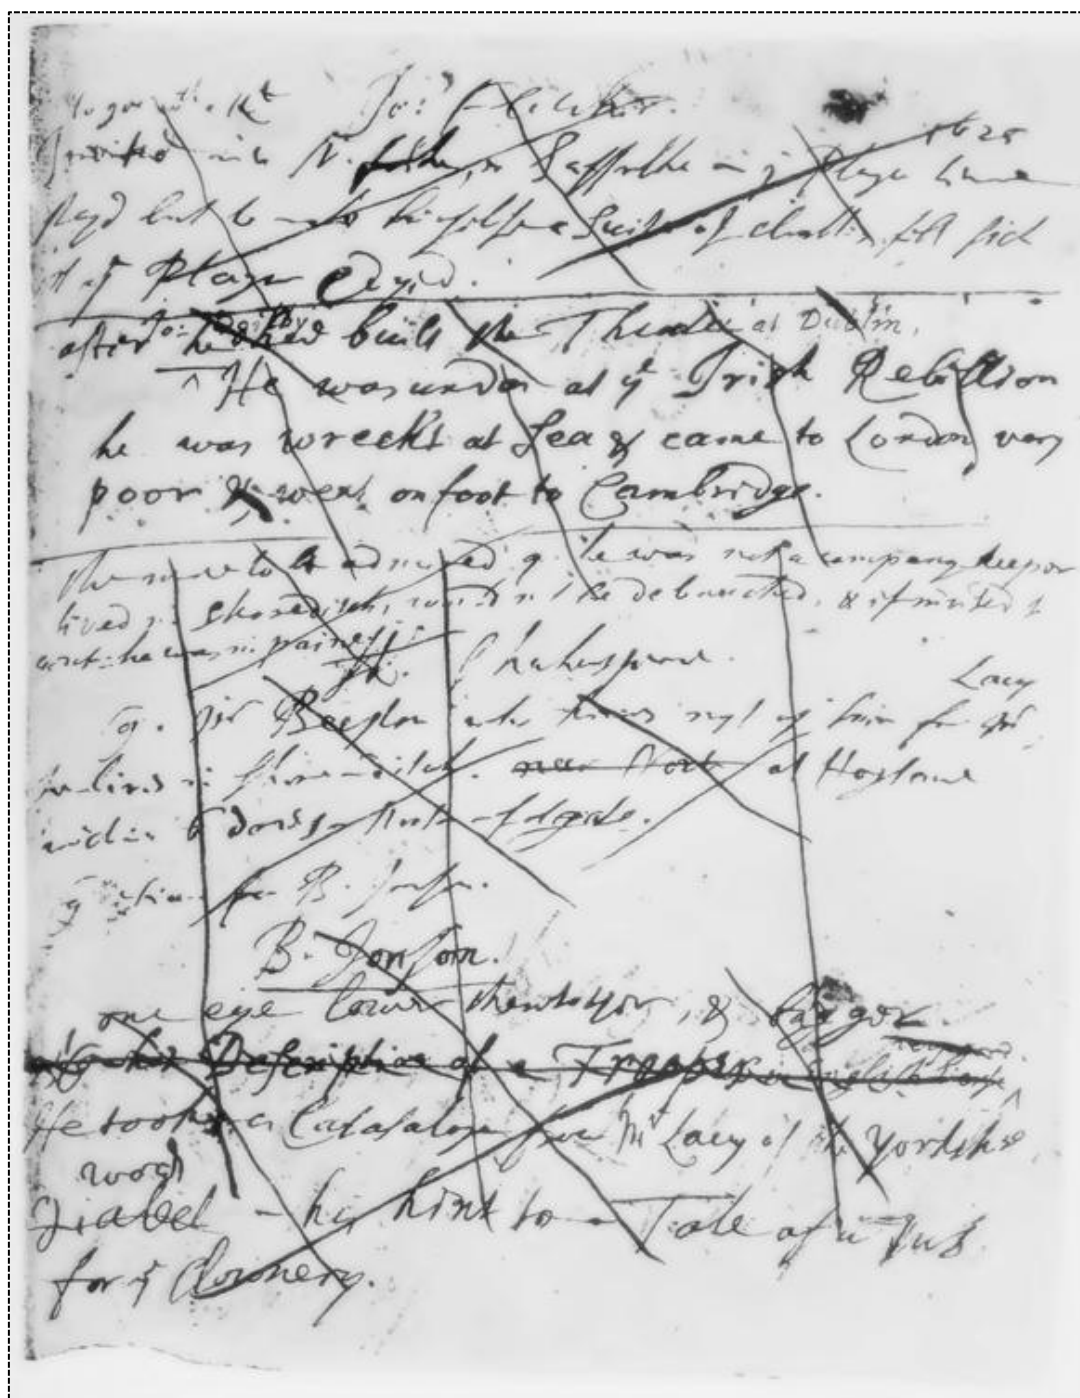 Jo: Fletcher.
1625
Invited into N. Suffolke in ye Plague time
stayd but to make himselfe a Suite of cloathes fell sick
of ye Plague & dyed.
after Jo: Ogilby he had built the Theatre at Dublin.
He was undon at ye Irish Rebellion
he was wreckt at Sea & came to London very
poor & went on foot to Cambridge.
the more to be admired q. he was not a company keeper
lived in Shoreditch, would not be debauched, & if invited to
writ: he was in paine.
W. Shakespeare.
Lacy
q. Mr Beeston who knows most of him fr Mr
he lives in Shore-ditch. near Nort at Hoglane
within 6 dores Nort - folgate.
q etiam for B. Jonson.
B. Jonson.
one eye lower then t'other, & bigger.
Description of a Trooper in English
He tooke a Catalogue from Mr Lacy of the Yorkshire
word
Dialect - his hint to a Tale of a Tub
for ye Clownery.